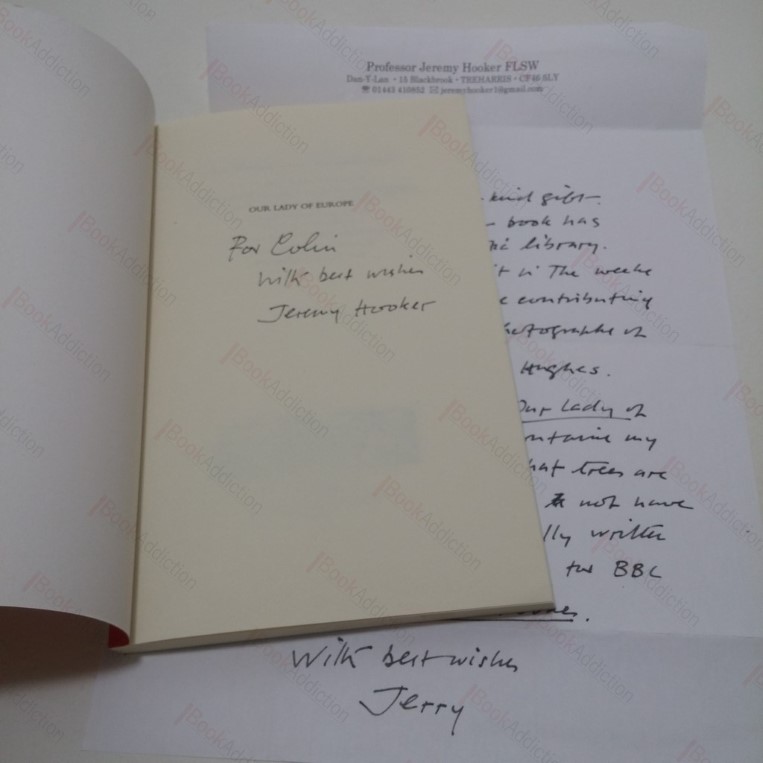 Professor Jeremy Hooker FLSW
Dan-Y-Lan • 15 Blackbrook • TREHARRIS • CF46 6LY
☎ 01443 410952 ✉ jeremyhooker1@gmail.com
OUR LADY OF EUROPE
For Colin
With best wishes
Jeremy Hooker
kind gift.
book has
library.
The weeks
contributing
photographs of
Hughes.
Our Lady of
my
trees are
not have
written
for BBC
With best wishes
Jerry
BookAddiction